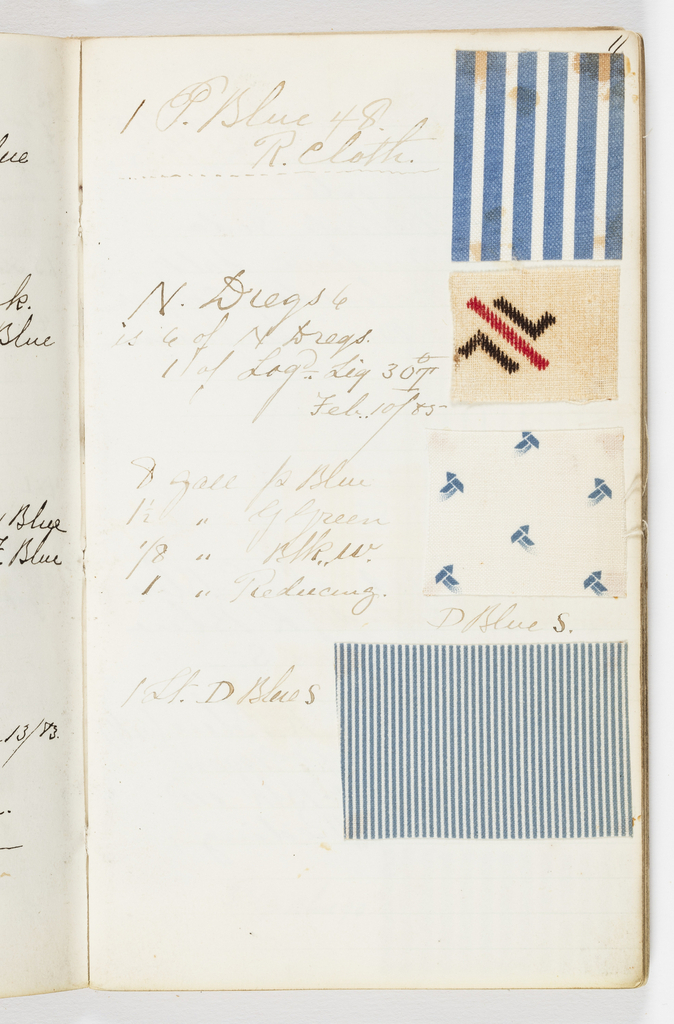 lue
k.
Blue
Blue
Blue
13/83.
11
1 P. Blue 48.
R. Cloth.
N. Dregs 6
is 6 of N Dregs.
1 of Logd. Liq 30 T
Feb. 10/85
8 galls Blue
1½ " G Green
1/8 " Blk. W.
1 " Reducing.
D Blue S.
1 Lt. D Blue S